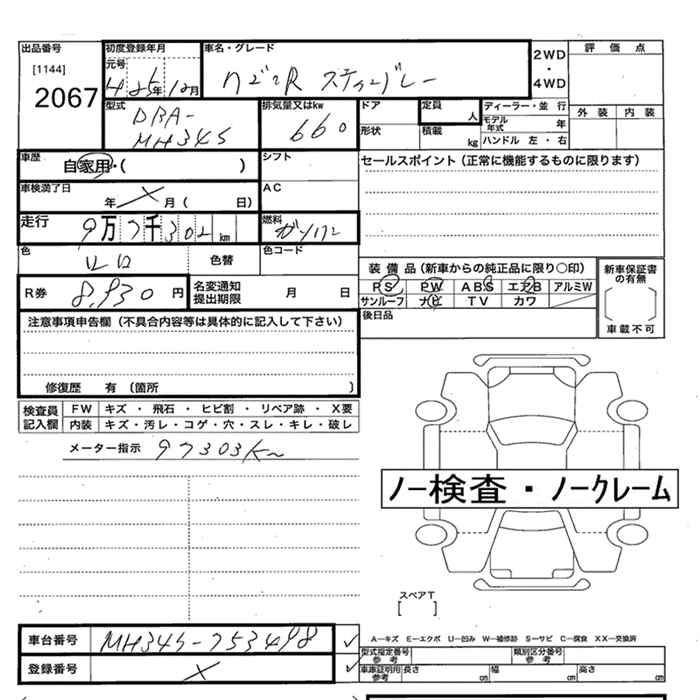 出品番号 初度登録年月 車名・グレード 2WD・4WD 評価点
[1144] 元号
2067 H 25年 12月 ワゴンR スティングレー
型式 排気量又はkw ドア 定員 人 ディーラー・並 行 外装 内装
DBA-MH34S 660 形状 積載 kg モデル年式 年
ハンドル 左・右
車歴 自家用・( ) シフト セールスポイント(正常に機能するものに限ります)
車検満了日 年 月 ( 日) AC
走行 9万7千302km 燃料 ガソリン
色 シロ 色替 色コード
装備品(新車からの純正品に限り○印) 新車保証書の有無
R券 8,930円 名変通知提出期限 月 日
PS PW ABS エアB アルミW
サンルーフ ナビ TV カワ
車載不可
注意事項申告欄(不具合内容等は具体的に記入して下さい) 後日品
修復歴 有 (箇所 )
検査員記入欄 FW キズ ・ 飛石 ・ ヒビ割 ・ リペア跡 ・ X要
内装 キズ・汚レ・コゲ・穴・スレ・キレ・破レ
メーター指示 97303Km
ノー検査・ノークレーム
スペアT
[ ]
車台番号 MH34S-753498
A―キズ E―エクボ U―凹み W―補修跡 S―サビ C―腐食 XX―交換済
登録番号
型式指定番号 参考 類別区分番号 参考
車庫証明用 参考 長さ cm 幅 cm 高さ cm